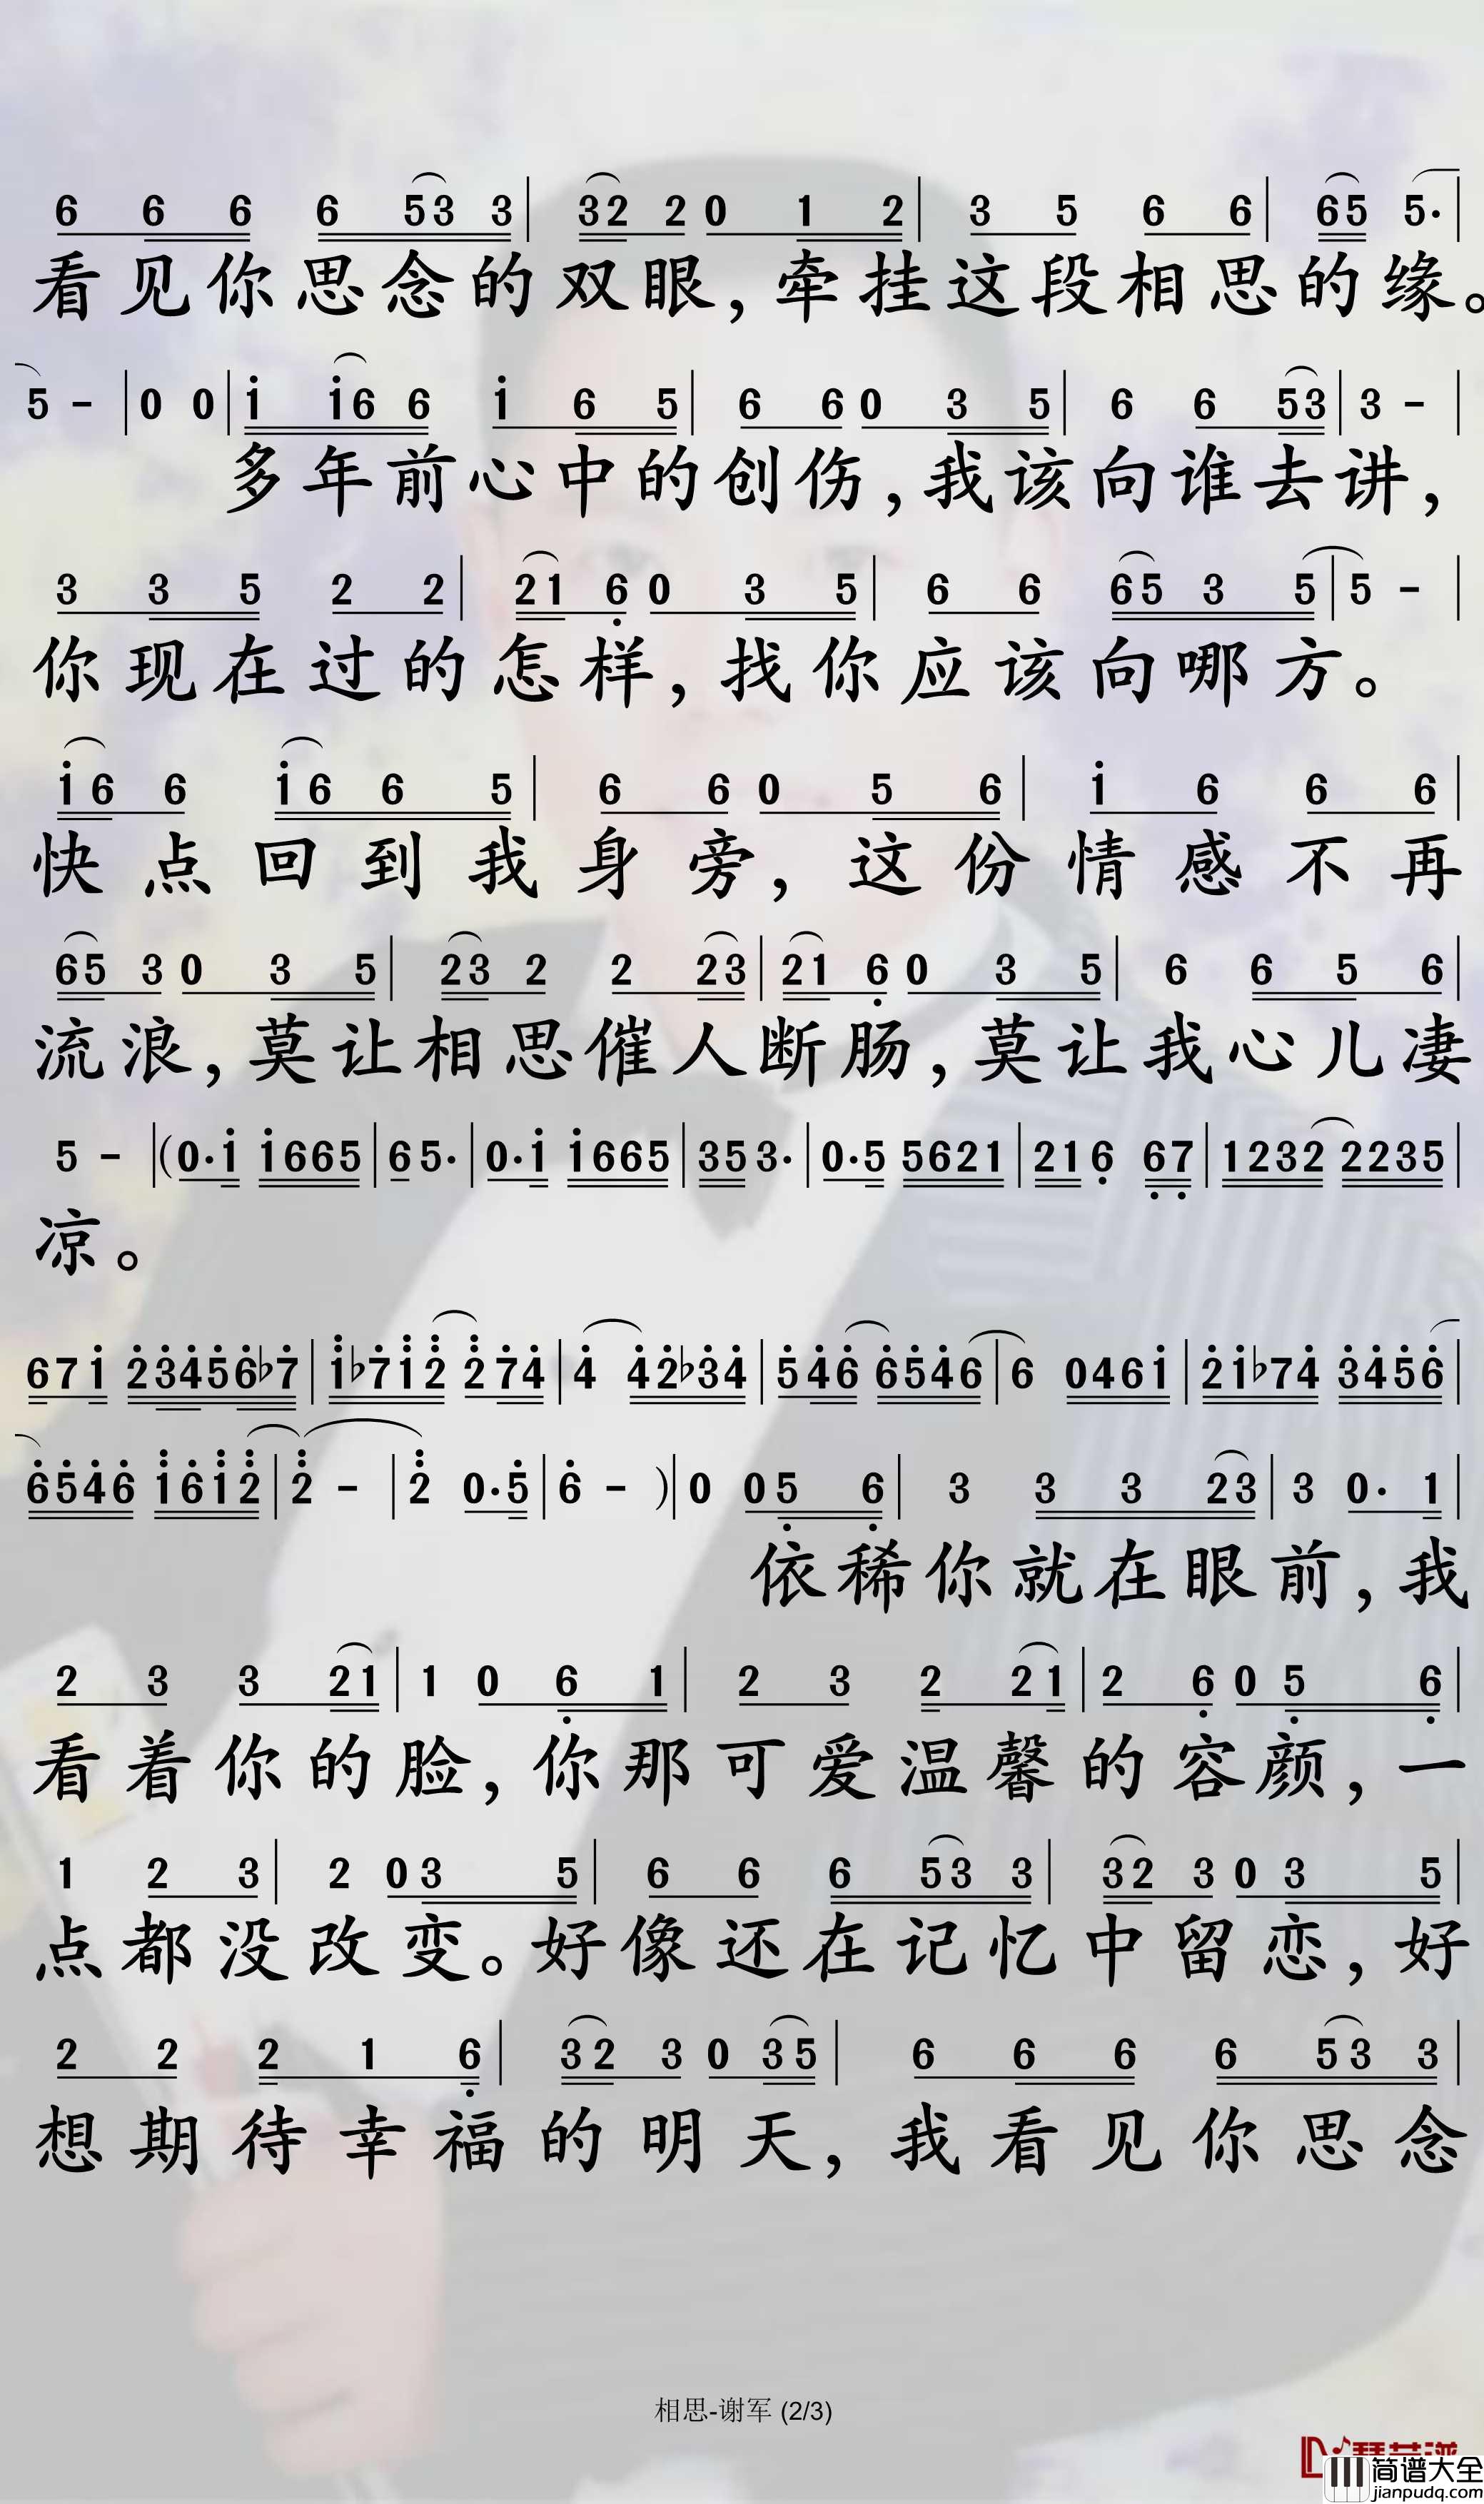 6 6 6 6 5 3 3 | 3 2 2 0 1 2 | 3 5 6 6 | 6 5 5· |
看见你思念的双眼，牵挂这段相思的缘。
5 - | 0 0 | i i 6 6 i 6 5 | 6 6 0 3 5 | 6 6 5 3 | 3 - |
多年前心中的创伤，我该向谁去讲，
3 3 5 2 2 | 2 1 6 0 3 5 | 6 6 6 5 3 5 | 5 - |
你现在过的怎样，找你应该向哪方。
i 6 6 i 6 6 5 | 6 6 0 5 6 | i 6 6 6 |
快点回到我身旁，这份情感不再
6 5 3 0 3 5 | 2 3 2 2 2 3 | 2 1 6 0 3 5 | 6 6 5 6 |
流浪，莫让相思催人断肠，莫让我心儿凄
5 - | (0·i i665 | 6 5· | 0·i i665 | 35 3· | 0·5 5621 | 21 6 67 | 1232 2235 |
凉。
67i 23456b7 | ib7i2 274 | 4 42b34 | 546 6546 | 6 046i | 2ib74 3456 |
6546 i6i2 | 2 - | 2 0·5 | 6 - ) | 0 0 5 6 | 3 3 3 2 3 | 3 0· 1 |
依稀你就在眼前，我
2 3 3 2 1 | 1 0 6 1 | 2 3 2 2 1 | 2 6 0 5 6 |
看着你的脸，你那可爱温馨的容颜，一
1 2 3 | 2 0 3 5 | 6 6 6 5 3 3 | 3 2 3 0 3 5 |
点都没改变。好像还在记忆中留恋，好
2 2 2 1 6 | 3 2 3 0 3 5 | 6 6 6 6 5 3 3 |
想期待幸福的明天，我看见你思念
相思-谢军 (2/3)
简谱大全
jianpudq.com